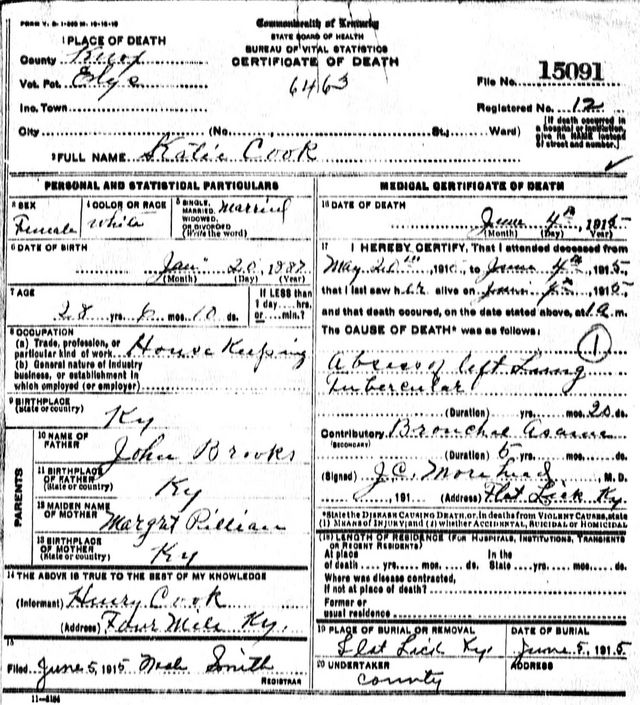 FORM V. S. 1-200 M. 10-16-10
Commonwealth of Kentucky
STATE BOARD OF HEALTH
BUREAU OF VITAL STATISTICS
CERTIFICATE OF DEATH
1 PLACE OF DEATH
County Knox
Vot. Pct.
Inc. Town
6463
File No. 15091
Registered No. 12
City (No. St.; Ward)
[If death occurred in a hospital or institution, give its NAME instead of street and number.]
2 FULL NAME Katie Cook
PERSONAL AND STATISTICAL PARTICULARS
3 SEX Female
4 COLOR OR RACE White
5 SINGLE, MARRIED, WIDOWED OR DIVORCED (Write the word) Married
6 DATE OF BIRTH
Jan 20, 1887
(Month) (Day) (Year)
7 AGE
28 yrs. mos. 10 ds.
If LESS than 1 day ... hrs. or ... min.?
8 OCCUPATION
(a) Trade, profession, or particular kind of work House Keeping
(b) General nature of industry business, or establishment in which employed (or employer)
9 BIRTHPLACE (State or country) Ky
PARENTS
10 NAME OF FATHER John Brooks
11 BIRTHPLACE OF FATHER (State or country) Ky
12 MAIDEN NAME OF MOTHER Margrt
13 BIRTHPLACE OF MOTHER (State or country) Ky
14 THE ABOVE IS TRUE TO THE BEST OF MY KNOWLEDGE
(Informant) Henry Cook
(Address) Four Mile Ky.
15
Filed June 5, 1915 Smith
REGISTRAR
11-6184
MEDICAL CERTIFICATE OF DEATH
16 DATE OF DEATH
June 4th 1915
(Month) (Day) (Year)
17 I HEREBY CERTIFY, That I attended deceased from
May 20th, 1915 to June 4th 1915,
that I last saw her alive on June 4th 1915,
and that death occured, on the date stated above, at 1 a. m.
The CAUSE OF DEATH* was as follows:
1
Absess of left Lung
Tubercular
(Duration) yrs. mos. 20 ds.
Contributory Bronchial
(SECONDARY)
(Duration) 5 yrs. mos. ds.
(Signed) J.C. Morehead, M. D.
, 191 (Address) Flat Lick Ky.
*State the DISEASE CAUSING DEATH, or, in deaths from VIOLENT CAUSES, state (1) MEANS OF INJURY; and (2) whether ACCIDENTAL, SUICIDAL or HOMICIDAL
(18) LENGTH OF RESIDENCE (FOR HOSPITALS, INSTITUTIONS, TRANSIENTS OR RECENT RESIDENTS)
At place of death yrs. mos. ds. In the State yrs. mos. ds.
Where was disease contracted,
If not at place of death?
Former or
usual residence
19 PLACE OF BURIAL OR REMOVAL
Flat Lick Ky.
DATE OF BURIAL
June 5, 1915
20 UNDERTAKER
County
ADDRESS